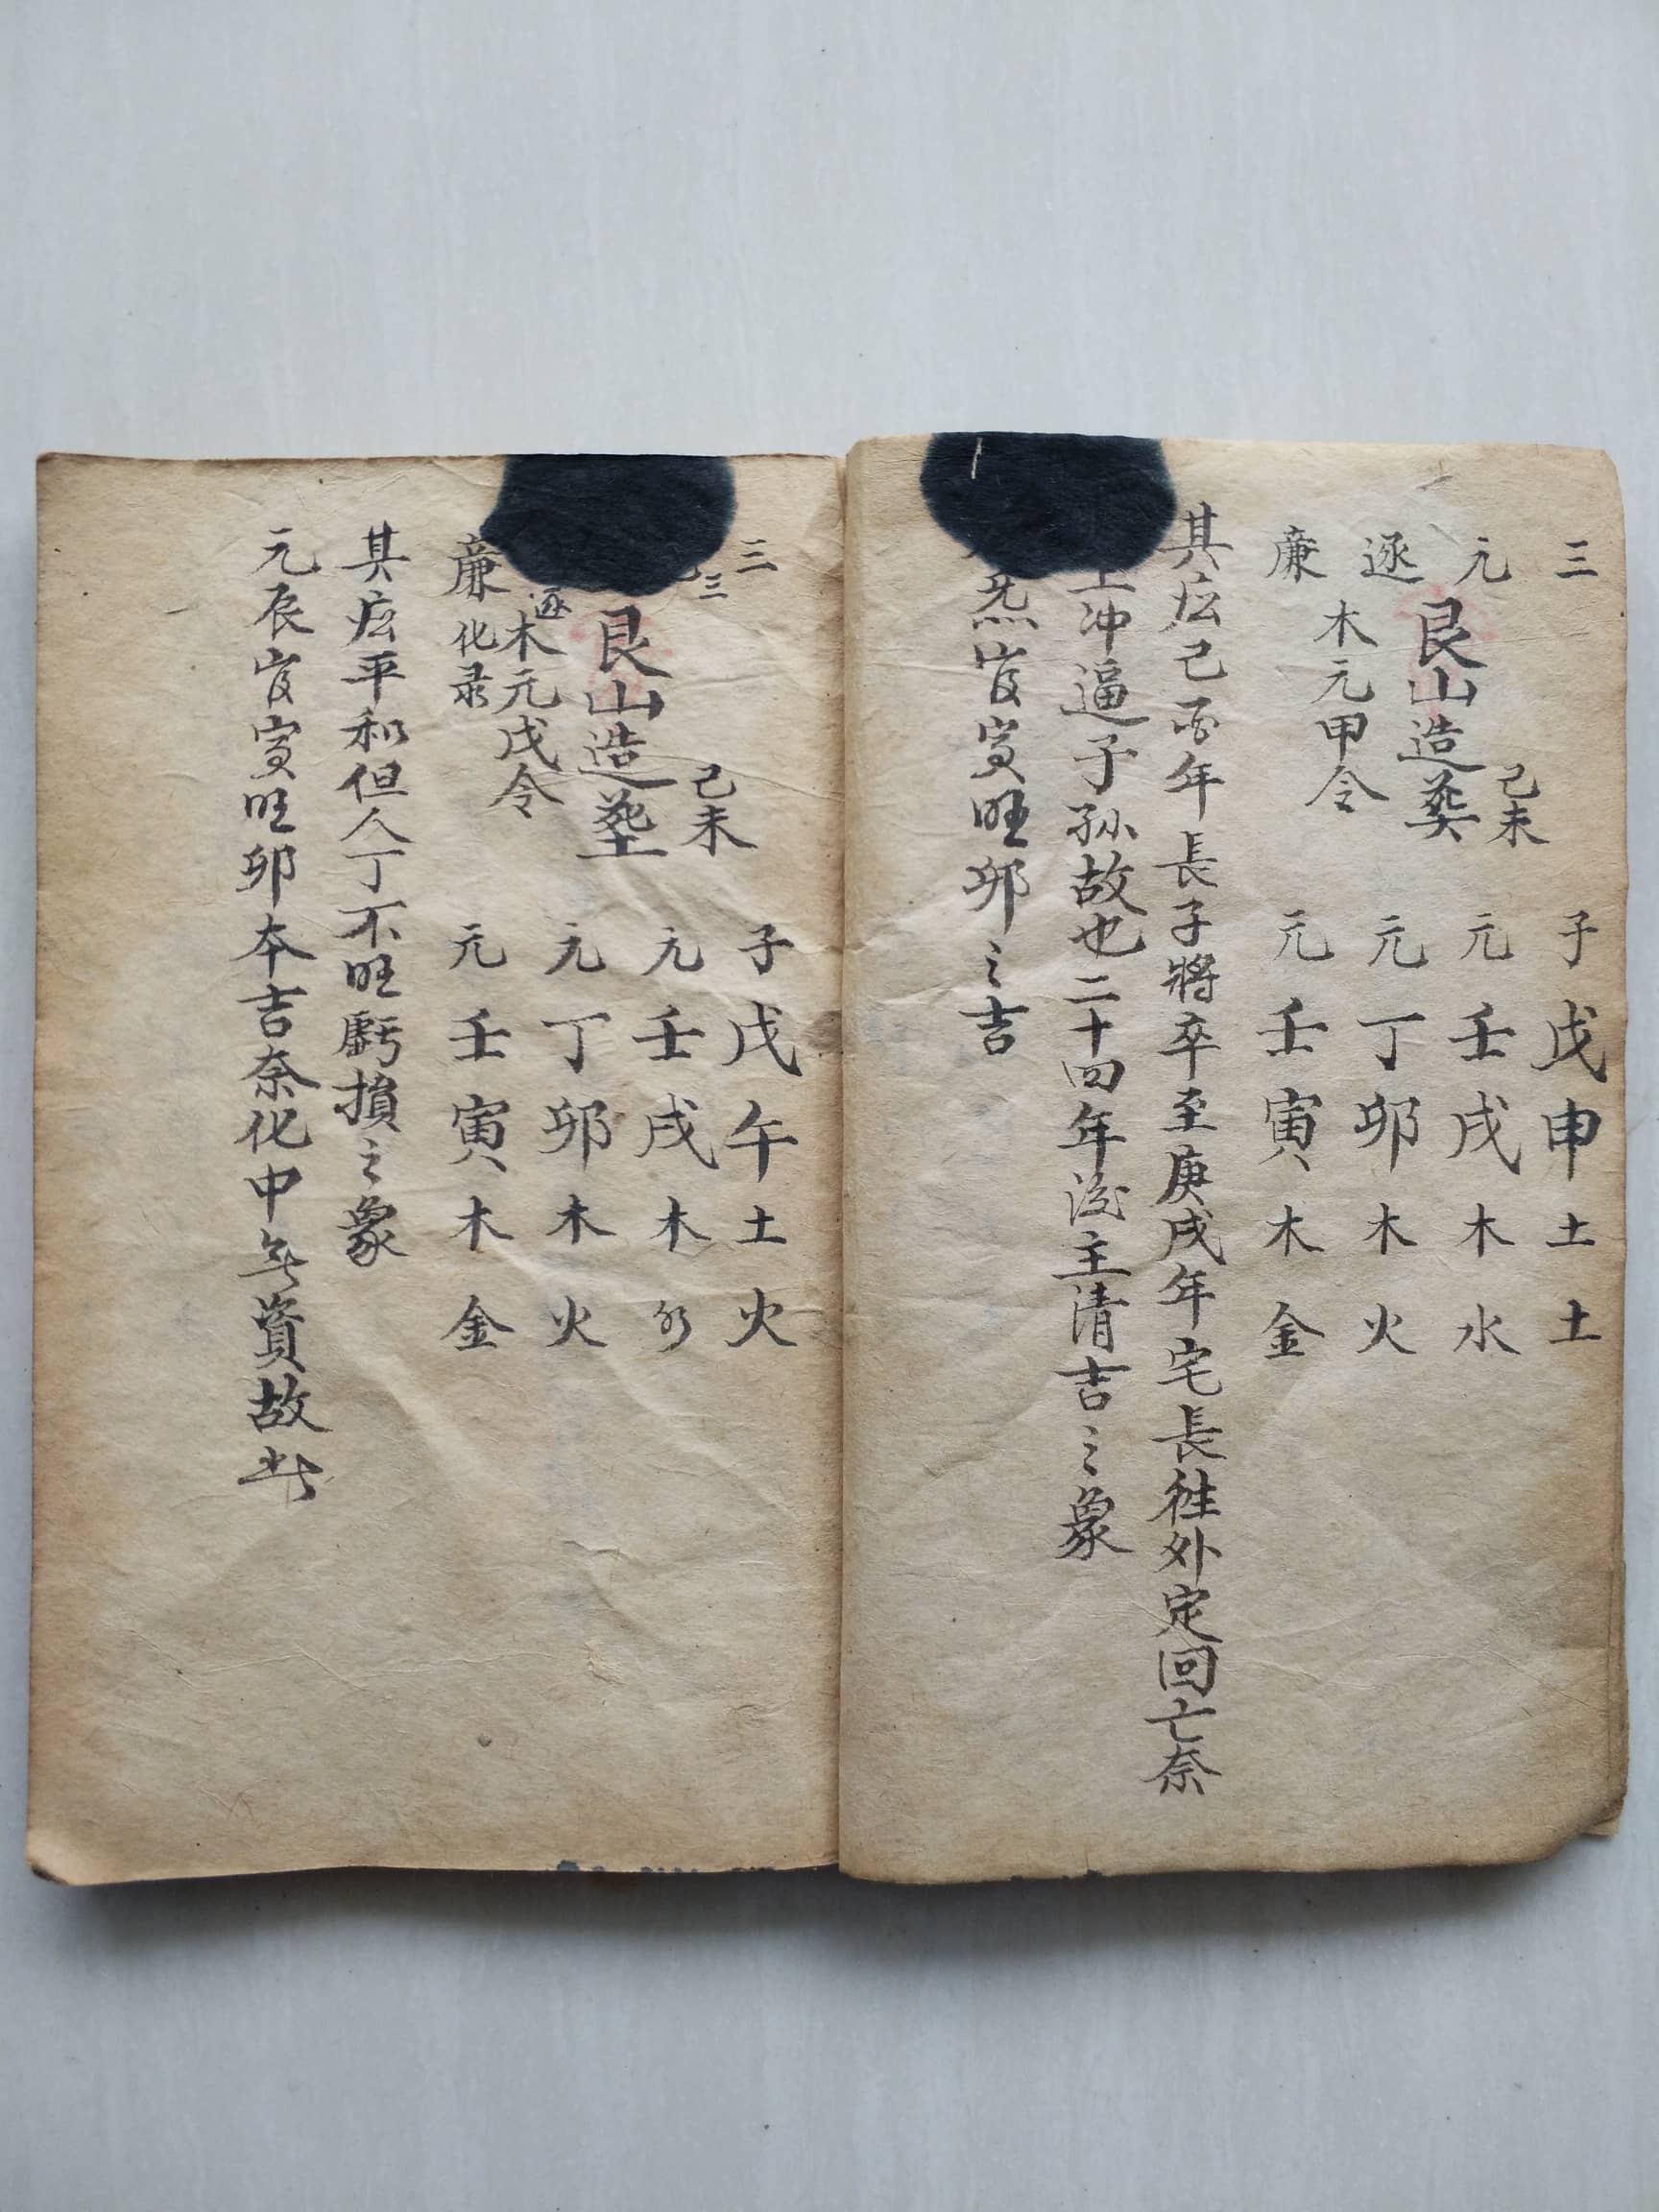 三 子戊申土土
己未
元 元壬戌木水
艮山造葬
逐 元丁卯木火
木元甲令
廉 元壬寅木金
其应己酉年長子將卒至庚戌年宅長往外定回亡奈
冲逼子孫故也二十四年後主清吉之象
寅旺卯之吉
三 子戊午土火
三
己未
元壬戌木水
艮山造塟
逐 元丁卯木火
木元戊令
廉化录 元壬寅木金
其应平和但人丁不旺虧損之象
元辰寅旺卯本吉奈化中無資故此